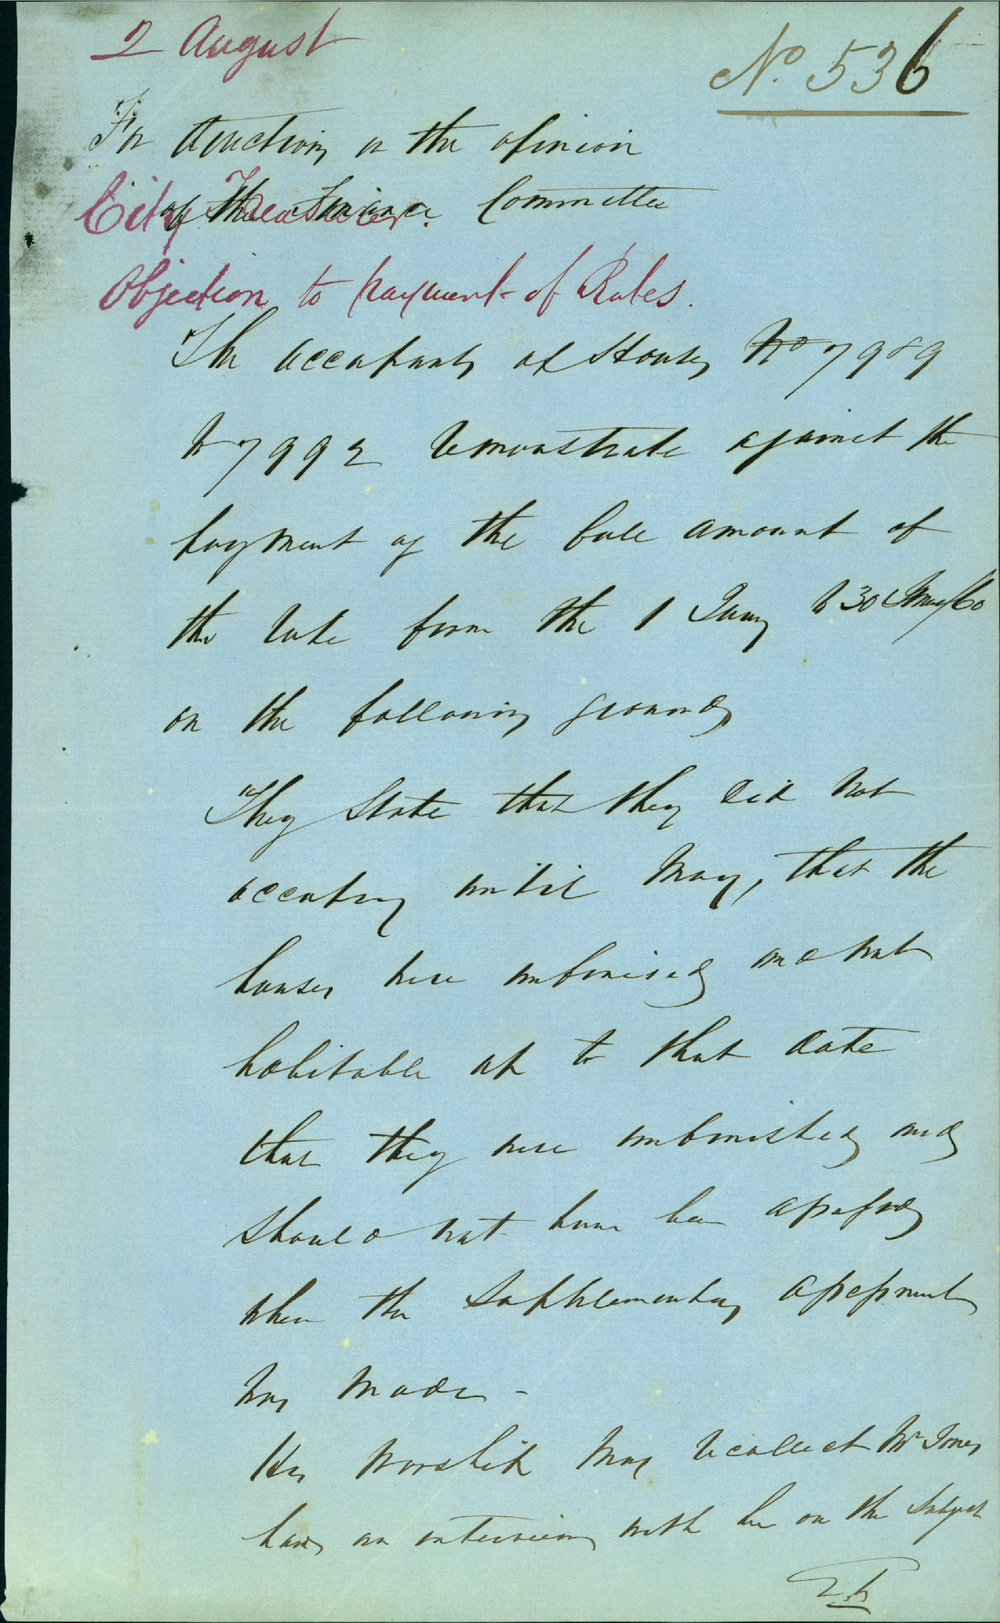 2 August
No. 536
For directions or the opinion
of the Finance Committee
City Treasurer.
Objection to payment of Rates.
The occupants of Houses No 7989
to 7992 remonstrate against the
payment of the full amount of
the rate from the 1 Jany to 30 June/60
on the following grounds
They state that they did not
occupy until May, that the
houses were unfinished and not
habitable up to that date
that they were unfinished and
should not have been assessed
when the Supplementary assessment
was made -
His Worship may recollect Mr Jones
having an interview with him on the Subject